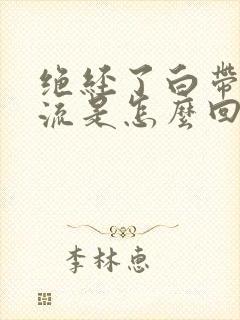 绝经了白带
流是怎麼回
李林惠